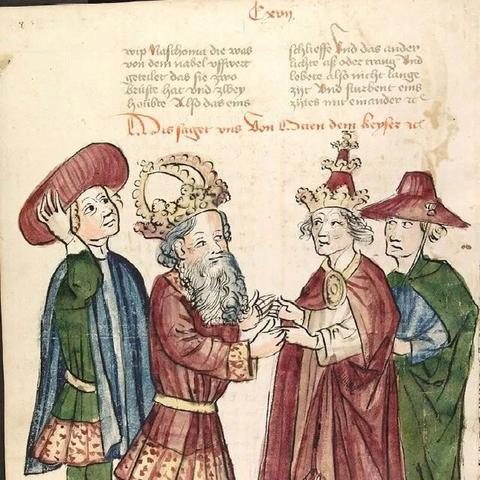 Cxvij
wip Naschoma die was
von dem nabel vffwert
geteilet das sie zwo
brüste hat vnd zwey
höubte Also das eins
schlieffe vnd das ander
lachte aß oder trang vnd
lebete also nicht lange
zijt vnd sturbent eins
zijtes mit einander ꝛc
Dis saget vns von Otten dem keyser ꝛc